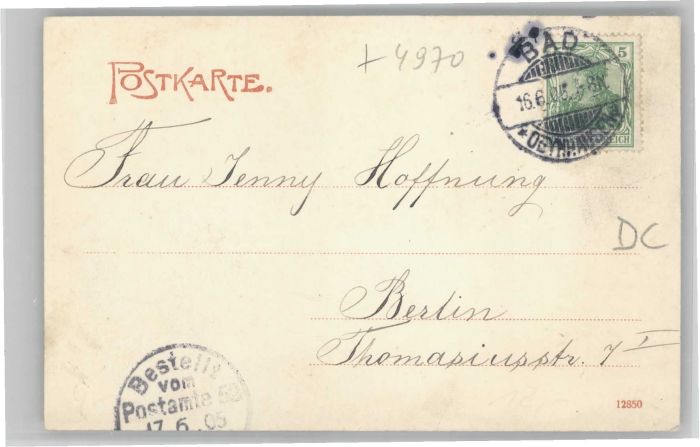 POSTKARTE.
+ 4970
5
BAD
16.6.05.
*OEYNHAUSEN*
REICH
Frau Jenny Hoffnung
DC
Berlin
Thomasiusstr. 7 I
Bestellt
vom
Postamte
17.6.05
12850